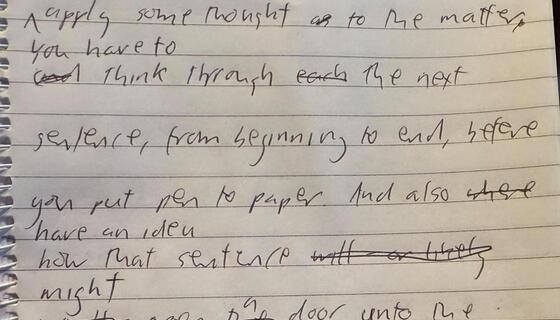 ^ apply some thought as to the matter,
you have to
and think through each the next
sentence, from beginning to end, before
you put pen to paper. And also where
have an idea
how that sentence will or likely
might
door unto the